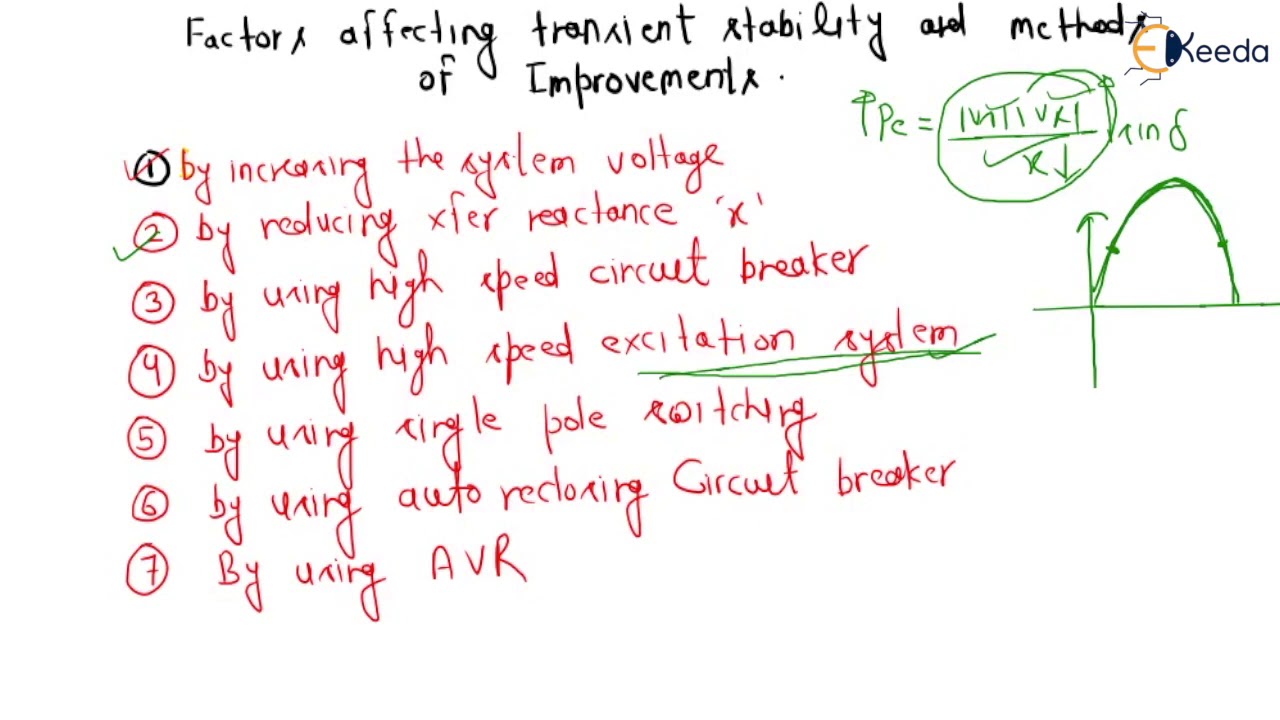 Factors affecting transient stability and methods
of Improvements.
EKeeda
↑Pe = |Vs||VR| / x↓ sin δ
① by increasing the system voltage
② by reducing xfer reactance 'x'
③ by using high speed circuit breaker
④ by using high speed excitation system
⑤ by using single pole switching
⑥ by using auto reclosing Circuit breaker
⑦ By using AVR